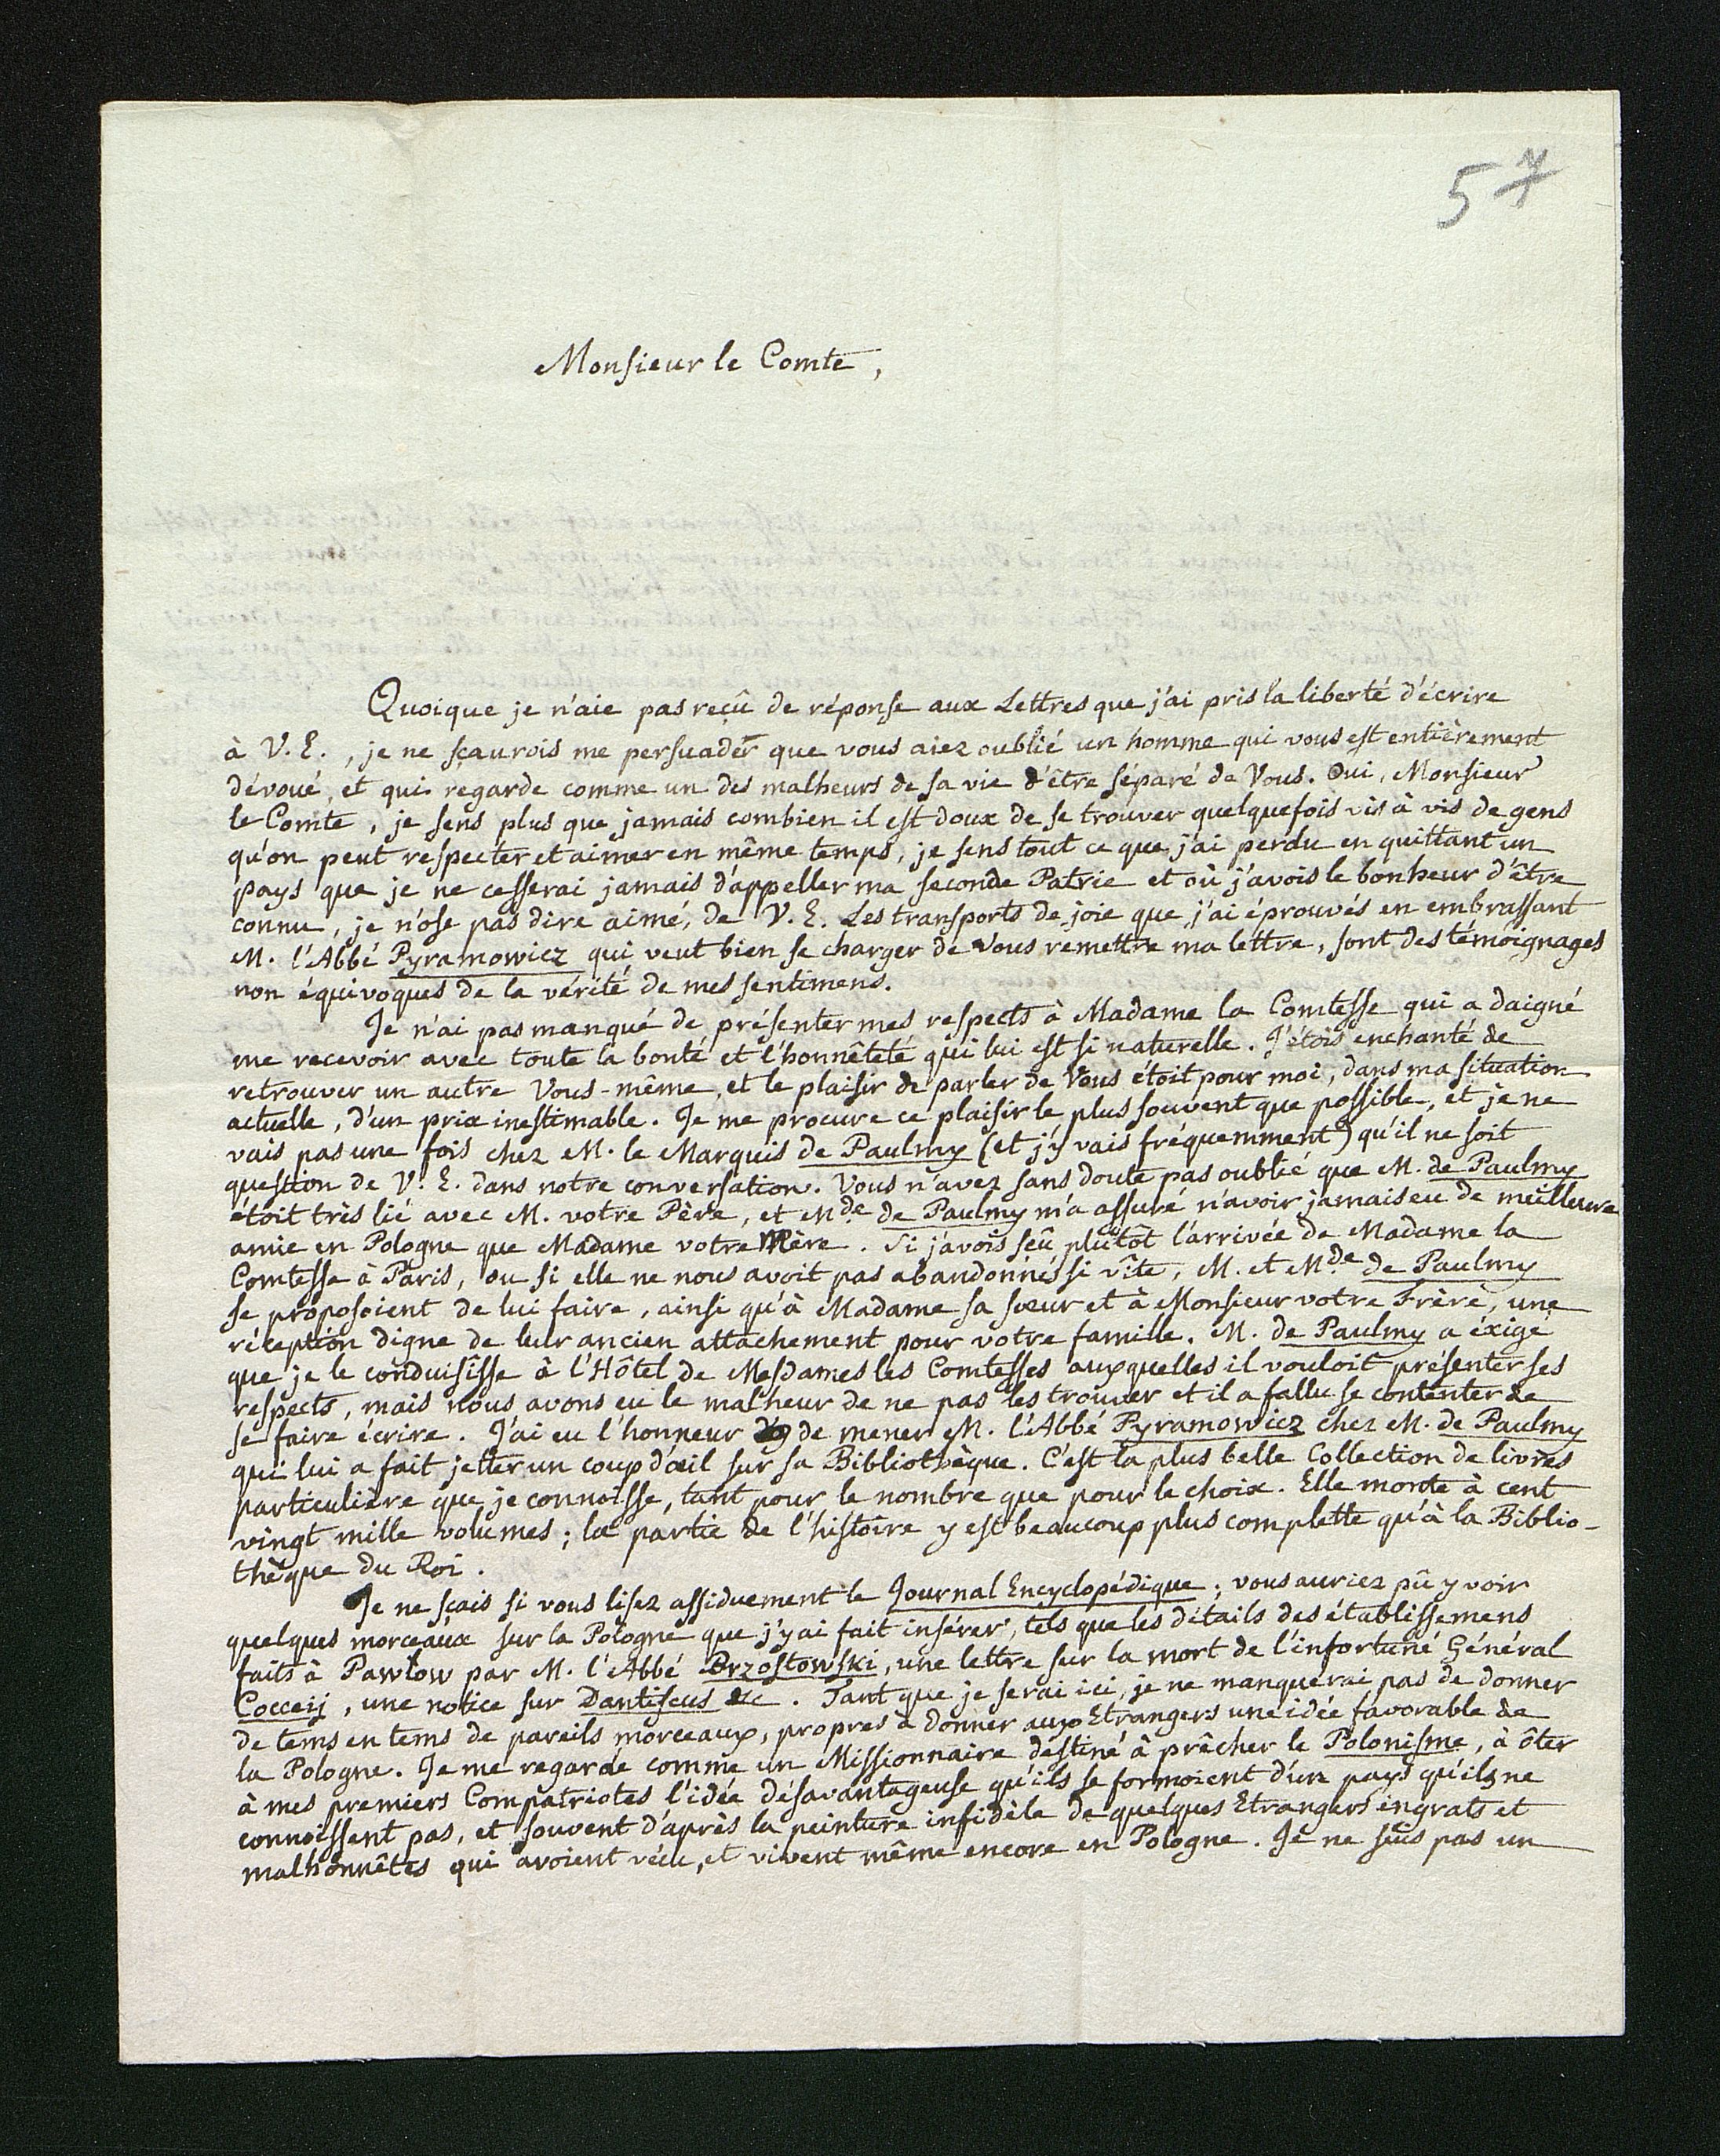 57
Monsieur le Comte,
Quoique je n'aie pas reçû de réponse aux Lettres que j'ai pris la liberté d'écrire
à V. E., je ne sçaurois me persuader que vous aiez oublié un homme qui vous est entièrement
dévoué, et qui regarde comme un des malheurs de sa vie d'être séparé de Vous. Oui, Monsieur
le Comte, je sens plus que jamais combien il est doux de se trouver quelquefois vis à vis de gens
qu'on peut respecter et aimer en même temps, je sens tout ce que j'ai perdu en quittant un
pays que je ne cesserai jamais d'appeller ma seconde Patrie et où j'avois le bonheur d'être
connu, je n'ose pas dire aimé, de V. E. Les transports de joie que j'ai éprouvés en embrassant
M. l'Abbé Pyramowicz qui veut bien se charger de Vous remettre ma lettre, sont des témoignages
non équivoques de la vérité de mes sentimens.
Je n'ai pas manqué de présenter mes respects à Madame la Comtesse qui a daigné
me recevoir avec toute la bonté et l'honnêteté qui lui est si naturelle. J'étois enchanté de
retrouver un autre Vous-même, et le plaisir de parler de Vous étoit pour moi, dans ma situation
actuelle, d'un prix inestimable. Je me procure ce plaisir le plus souvent que possible, et je ne
vais pas une fois chez M. le Marquis de Paulmy (et j'y vais fréquemment) qu'il ne soit
question de V. E. dans notre conversation. Vous n'avez sans doute pas oublié que M. de Paulmy
étoit très lié avec M. votre Père, et Mde. de Paulmy m'a assuré n'avoir jamais eu de meilleure
amie en Pologne que Madame votre Mère. Si j'avois sçû plûtôt l'arrivée de Madame la
Comtesse à Paris, ou si elle ne nous avoit pas abandonnés si vîte, M. et Mde. de Paulmy
se proposoient de lui faire, ainsi qu'à Madame sa sœur et à Monsieur votre Frère, une
réception digne de leur ancien attachement pour votre famille. M. de Paulmy a éxigé
que je le conduisîsse à l'Hôtel de Mesdames les Comtesses auxquelles il vouloit présenter ses
respects, mais nous avons eu le malheur de ne pas les trouver et il a fallu se contenter de
se faire écrire. J'ai eu l'honneur de mener M. l'Abbé Pyramowicz chez M. de Paulmy
qui lui a fait jetter un coup d'œil sur sa Bibliothèque. C'est la plus belle Collection de livres
particulière que je connoisse, tant pour le nombre que pour le choix. Elle monte à cent
vingt mille volumes; la partie de l'histoire y est beaucoup plus complette qu'à la Biblio-
thèque du Roi.
Je ne sçais si vous lisez assiduement le Journal Encyclopédique; vous auriez pû y voir
quelques morceaux sur la Pologne que j'y ai fait insérer, tels que les détails des établissemens
faits à Pawłow par M. l'Abbé Brzostowski, une lettre sur la mort de l'infortuné Général
Cocceij, une notice sur Dantiscus &c. Tant que je serai ici, je ne manquerai pas de donner
de tems en tems de pareils morceaux, propres à donner aux Etrangers une idée favorable de
la Pologne. Je me regarde comme un Missionnaire destiné à prêcher le Polonisme, à ôter
à mes premiers Compatriotes l'idée désavantageuse qu'ils se formoient d'un pays qu'ils ne
connoissent pas, et souvent d'après la peinture infidèle de quelques Etrangers ingrats et
malhonnêtes qui avoient vécu, et vivent même encore en Pologne. Je ne suis pas un